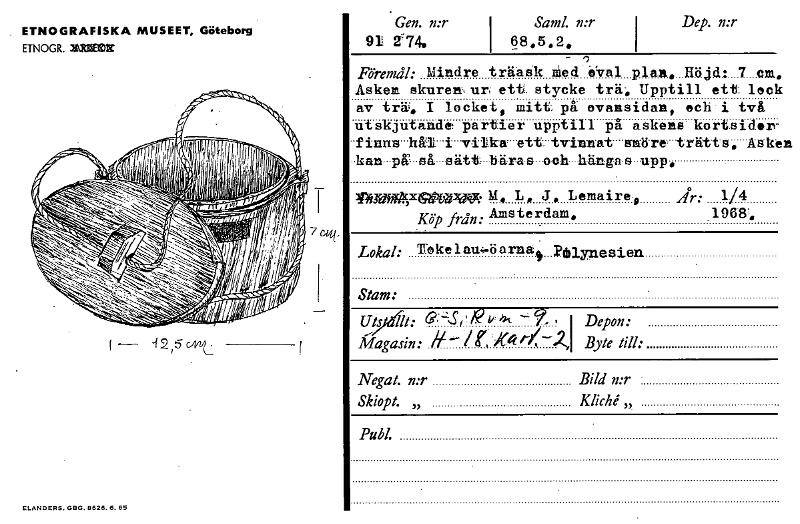 ETNOGRAFISKA MUSEET, Göteborg
ETNOGR.
7 cm.
12,5 cm.
ELANDERS, GBG. 8626. 6. 65
Gen. n:r Saml. n:r Dep. n:r
91 2 74. 68.5.2.
Föremål: Mindre träask med oval plan. Höjd: 7 cm.
Asken skuren ur ett stycke trä. Upptill ett lock
av trä. I locket, mitt på ovansidan, och i två
utskjutande partier upptill på askens kortsidor
finns hål i vilka ett tvinnat snöre trätts. Asken
kan på så sätt bäras och hängas upp.
M. L. J. Lemaire, År: 1/4
Köp från: Amsterdam. 1968.
Lokal: Tokelau-öarna, Polynesien
Stam:
Utställt: G.-S. Rum - 9. Depon:
Magasin: H-18. Kart.-2 Byte till:
Negat. n:r Bild n:r
Skiopt. „ Kliché „
Publ.